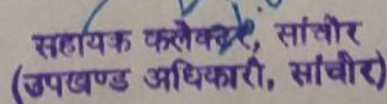 सहायक कलेक्टर, सांचोर
(उपखण्ड अधिकारी, सांचोर)